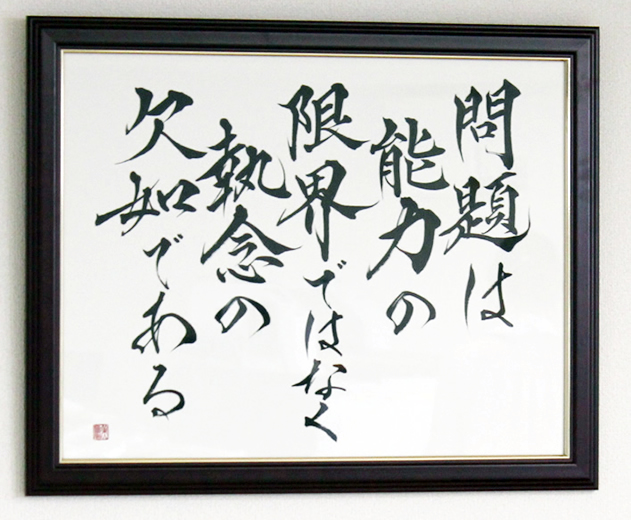 問題は
能力の
限界ではなく
執念の
欠如である